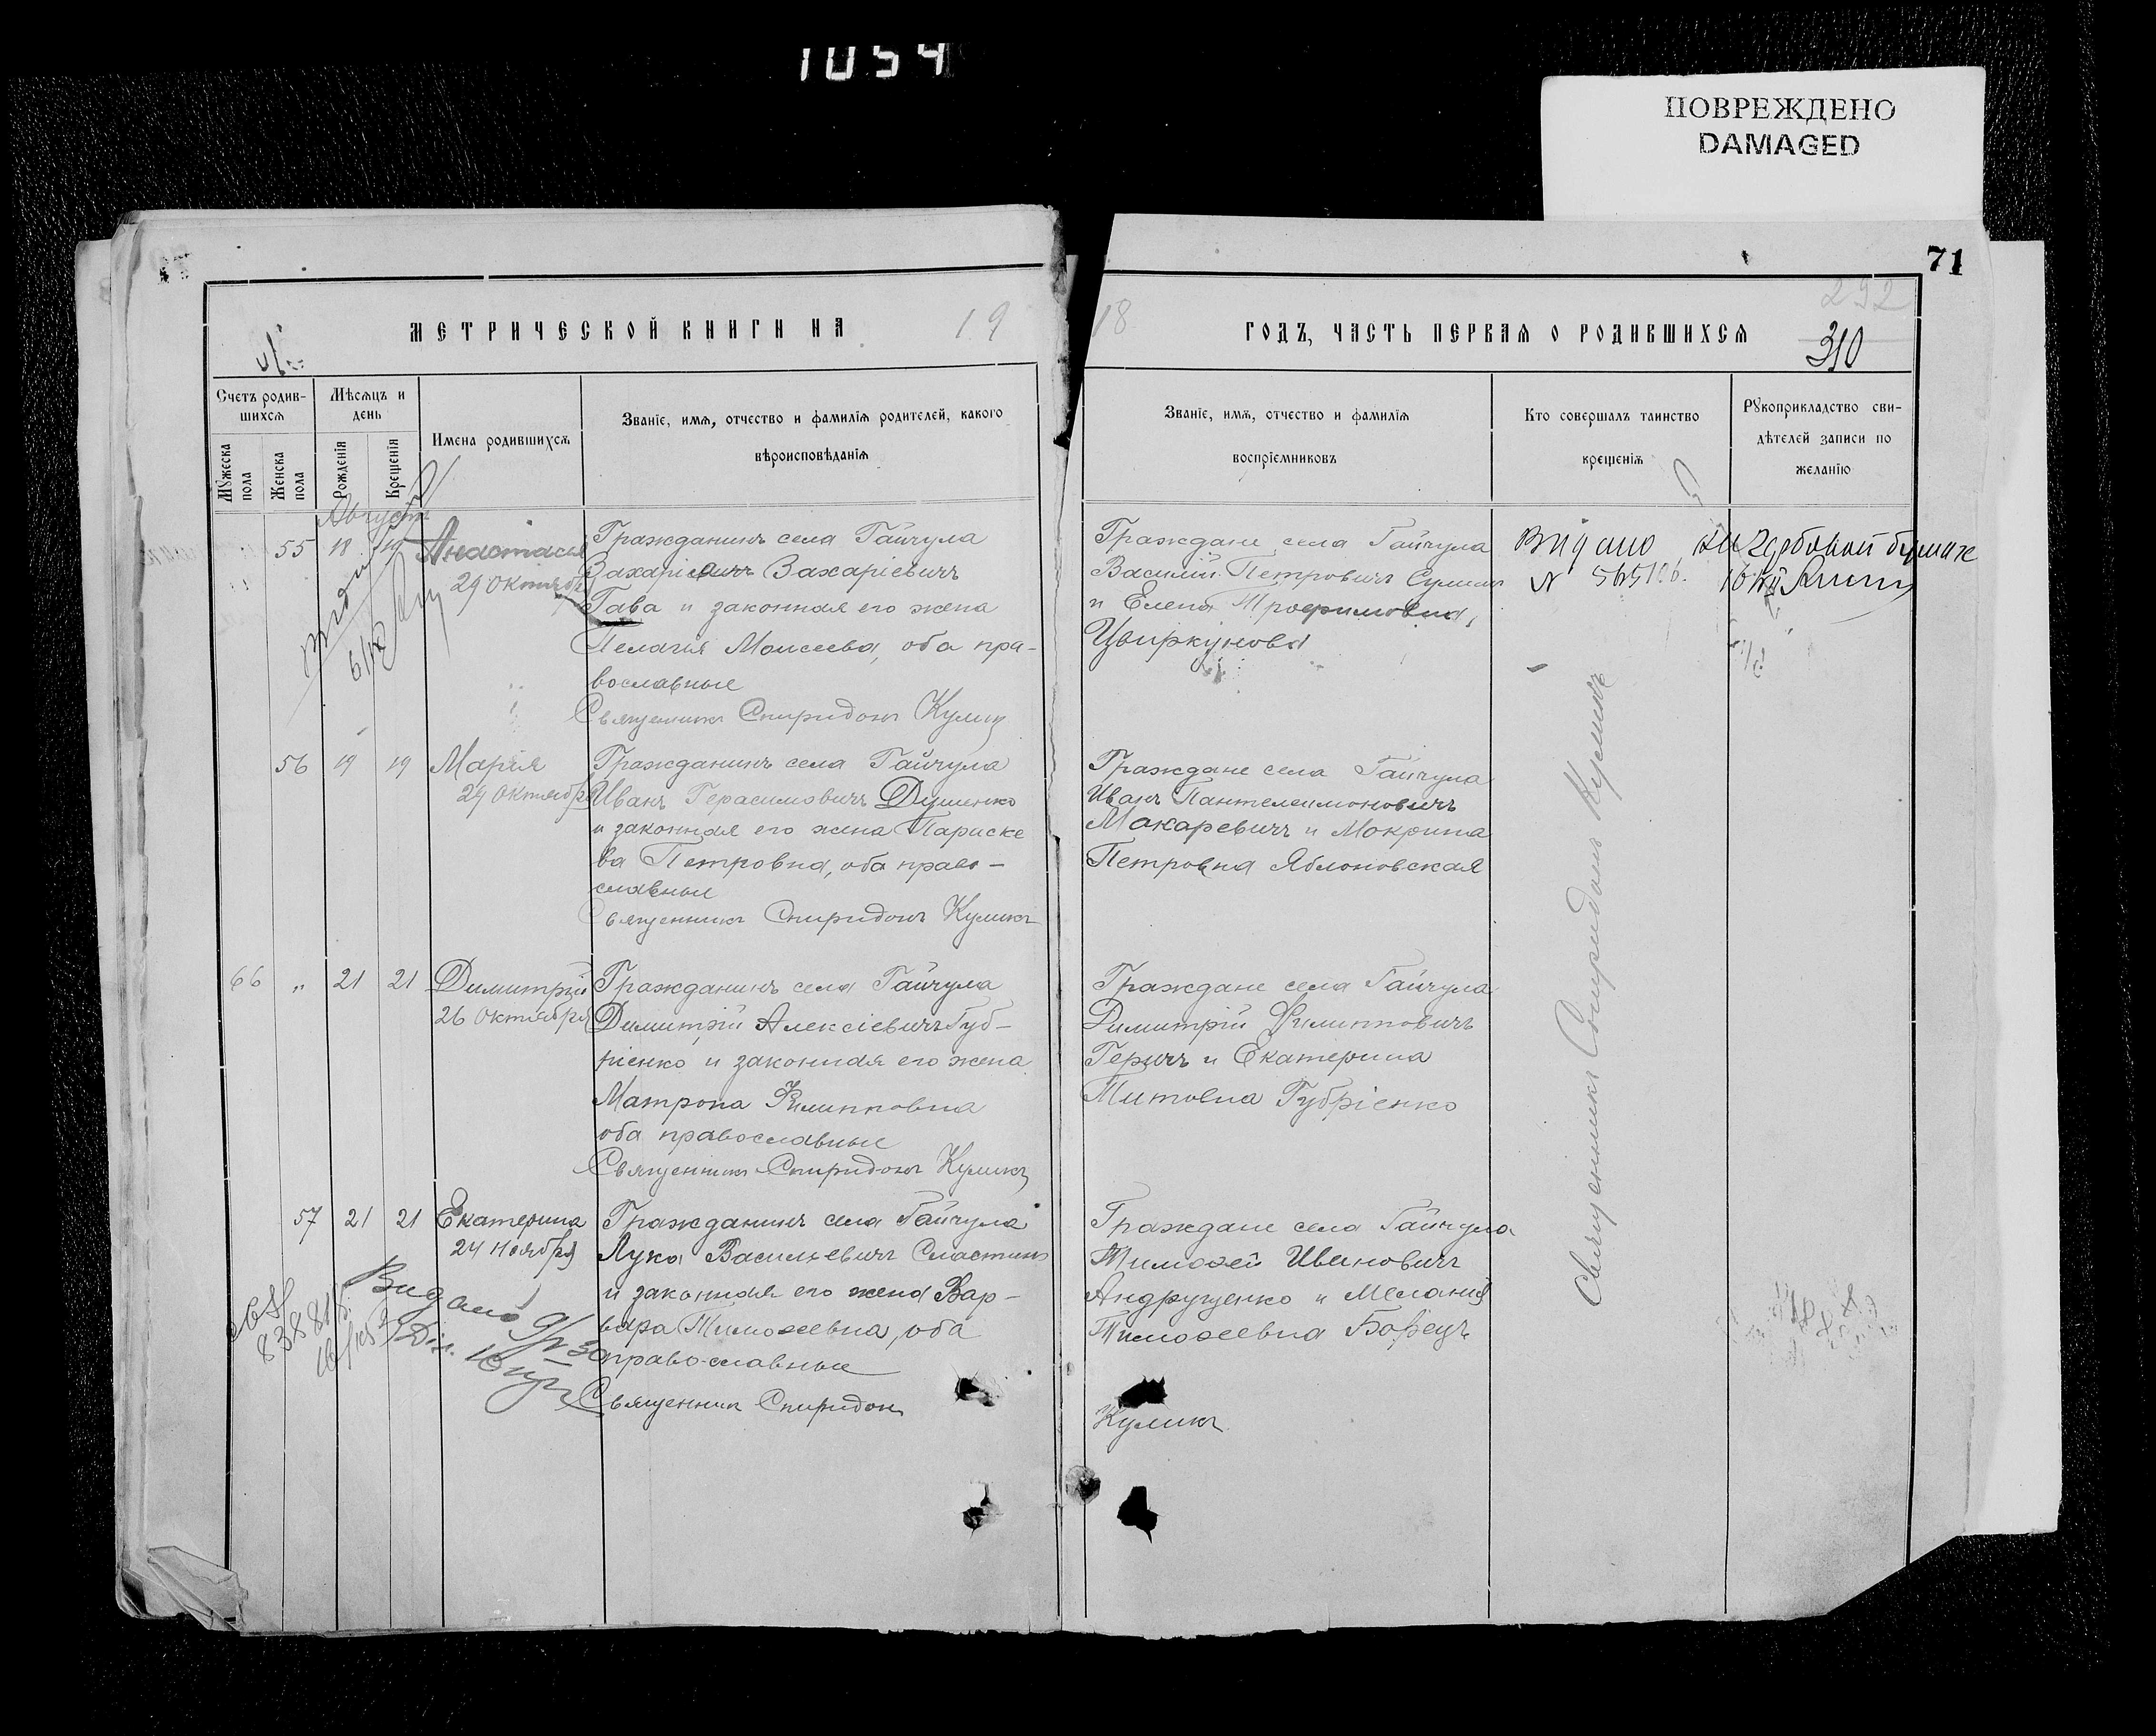 1054
ПОВРЕЖДЕНО
DAMAGED
71
292
310
МЕТРИЧЕСКОЙ КНИГИ НА 19
18 ГОДЪ, ЧАСТЬ ПЕРВАЯ О РОДИВШИХСЯ
Счетъ родив-
шихся
Мѣсяцъ и
день
Имена родившихся
Званіе, имя, отчество и фамилія родителей, какого
вѣроисповѣданія
Мужеска
пола
Женска
пола
Рожденія
Крещенія
Званіе, имя, отчество и фамилія
воспріемниковъ
Кто совершалъ таинство
крещенія
Рукоприкладство сви-
дѣтелей записи по
желанію
Августъ
55 18 19 Анастасія
29 Октября
Гражданинъ села Гайчула
Захаріевичъ Захаріевичъ
Гава и законная его жена
Пелагія Моисеева, оба пра-
вославные
Священникъ Спиридонъ Куликъ
Граждане села Гайчула
Василій Петровичъ
и Елена Трофимовна
Цвиркунова
Видано на гербовой бумаге
N
56 19 19 Марія
24 Октября
Гражданинъ села Гайчула
Иванъ Герасимовичъ Душенко
и законная его жена Параске
ва Петровна, оба право-
славные
Священникъ Спиридонъ Куликъ
Граждане села Гайчула
Иванъ Пантелеимоновичъ
Макаревичъ и Мокрина
Петровна Яблоновская
66 „ 21 21 Димитрій
26 Октября
Гражданинъ села Гайчула
Димитрій Алексіевичъ Губ-
ріенко и законная его жена
Матрона Филипповна
оба православные
Священникъ Спиридонъ Куликъ
Граждане села Гайчула
Димитрій Филипповичъ
Геричъ и Екатерина
Титовна Губріенко
57 21 21 Екатерина
24 Ноября
Гражданинъ села Гайчула
Лука Васильевичъ Сластинъ
и законная его жена Вар-
вара Тимофеевна, оба
православные
Священник Спиридон
Куликъ
Граждане села Гайчула
Тимофей Ивановичъ
Андрущенко и Меланія
Тимофеевна Борецъ
Видано
Священникъ Спиридонъ Куликъ